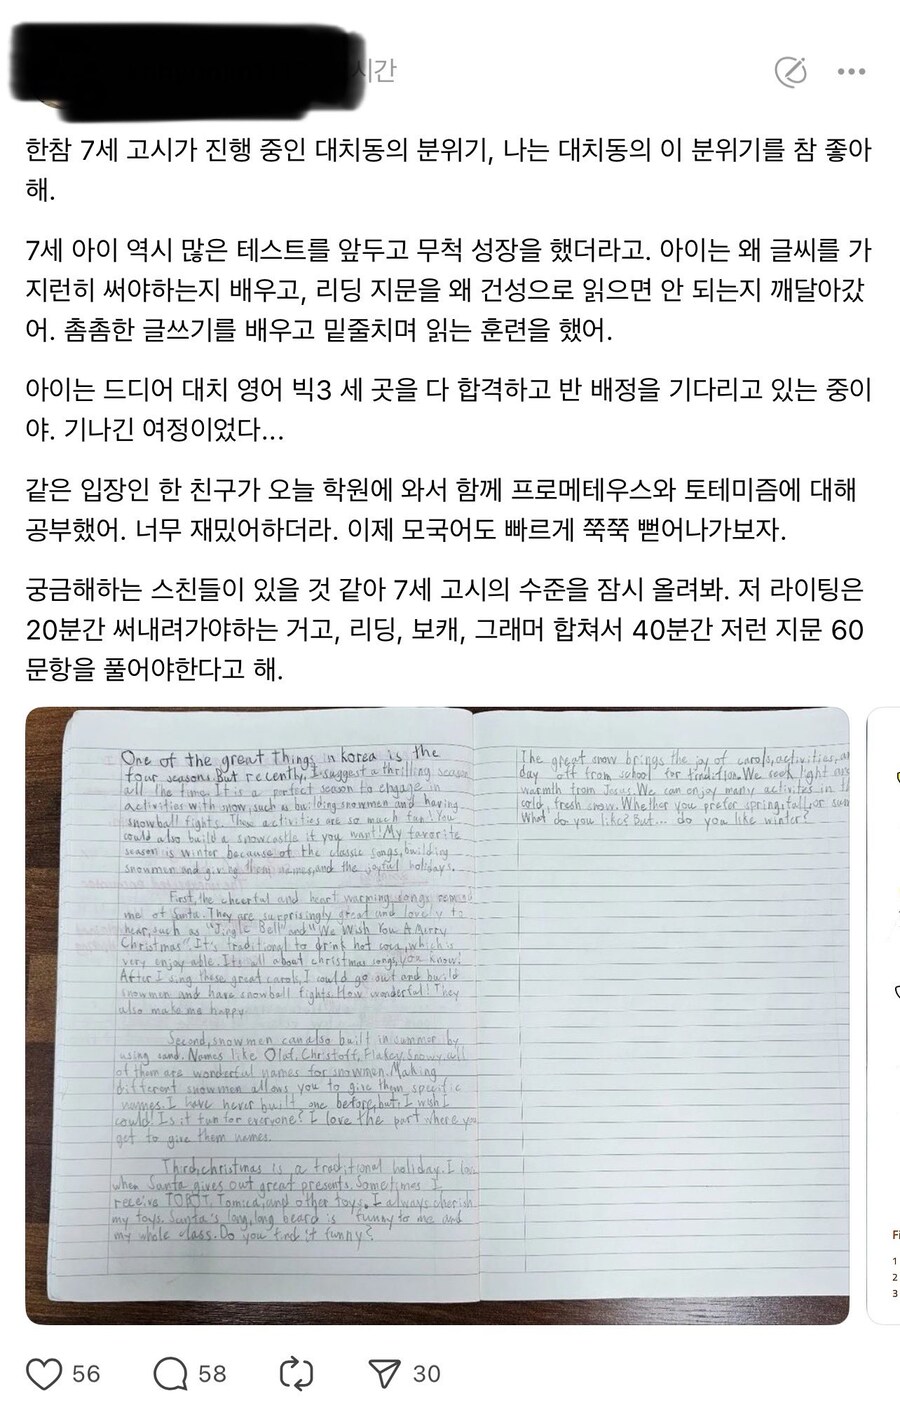 시간
한참 7세 고시가 진행 중인 대치동의 분위기, 나는 대치동의 이 분위기를 참 좋아
해.
7세 아이 역시 많은 테스트를 앞두고 무척 성장을 했더라고. 아이는 왜 글씨를 가
지런히 써야하는지 배우고, 리딩 지문을 왜 건성으로 읽으면 안 되는지 깨달아갔
어. 촘촘한 글쓰기를 배우고 밑줄치며 읽는 훈련을 했어.
아이는 드디어 대치 영어 빅3 세 곳을 다 합격하고 반 배정을 기다리고 있는 중이
야. 기나긴 여정이었다...
같은 입장인 한 친구가 오늘 학원에 와서 함께 프로메테우스와 토테미즘에 대해
공부했어. 너무 재밌어하더라. 이제 모국어도 빠르게 쭉쭉 뻗어나가보자.
궁금해하는 스친들이 있을 것 같아 7세 고시의 수준을 잠시 올려봐. 저 라이팅은
20분간 써내려가야하는 거고, 리딩, 보캐, 그래머 합쳐서 40분간 저런 지문 60
문항을 풀어야한다고 해.
One of the great things in korea is the
four seasons. But recently, I suggest a thrilling season
all the time. It is a perfect season to engage in
activities with snow, such as building snowmen and having
snowball fights. These activities are so much fun! You
could also build a snowcastle if you want! My favorite
season is winter because of the classic songs, building
snowmen and giving them names, and the joyful holidays.
First, the cheerful and heart warming songs remind
me of Santa. They are surprisingly great and lovely to
hear, such as "Jingle Bell" and "We Wish You A Merry
Christmas". It's traditional to drink hot coca, which is
very enjoy able. It's all about christmas songs, you know!
After I sing these great carols, I could go out and build
snowmen and have snowball fights. How wonderful! They
also make me happy.
Second, snowmen can also built in summer by
using sand. Names like Olaf, Christoff, Flakey, Snowy, all
of them are wonderful names for snowmen. Making
different snowmen allows you to give them specific
names. I have never built one before, but I wish I
could! Is it fun for everyone? I love the part where you
get to give them names.
Third, christmas is a traditional holiday. I love
when Santa gives out great presents. Sometimes I
receive TOBOT, Tomica, and other toys. I always cherish
my toys. Santa's long, long beard is funny to me and
my whole class. Do you find it funny?
The great snow brings the joy of carols, activities, a
day off from school for tradition. We seek light and
warmth from Jesus. We can enjoy many activites in th
cold, fresh snow. Whether you prefer spring, fall, or sum
What do you like? But... do you like winter?
Fi
1
2
3
56
58
30